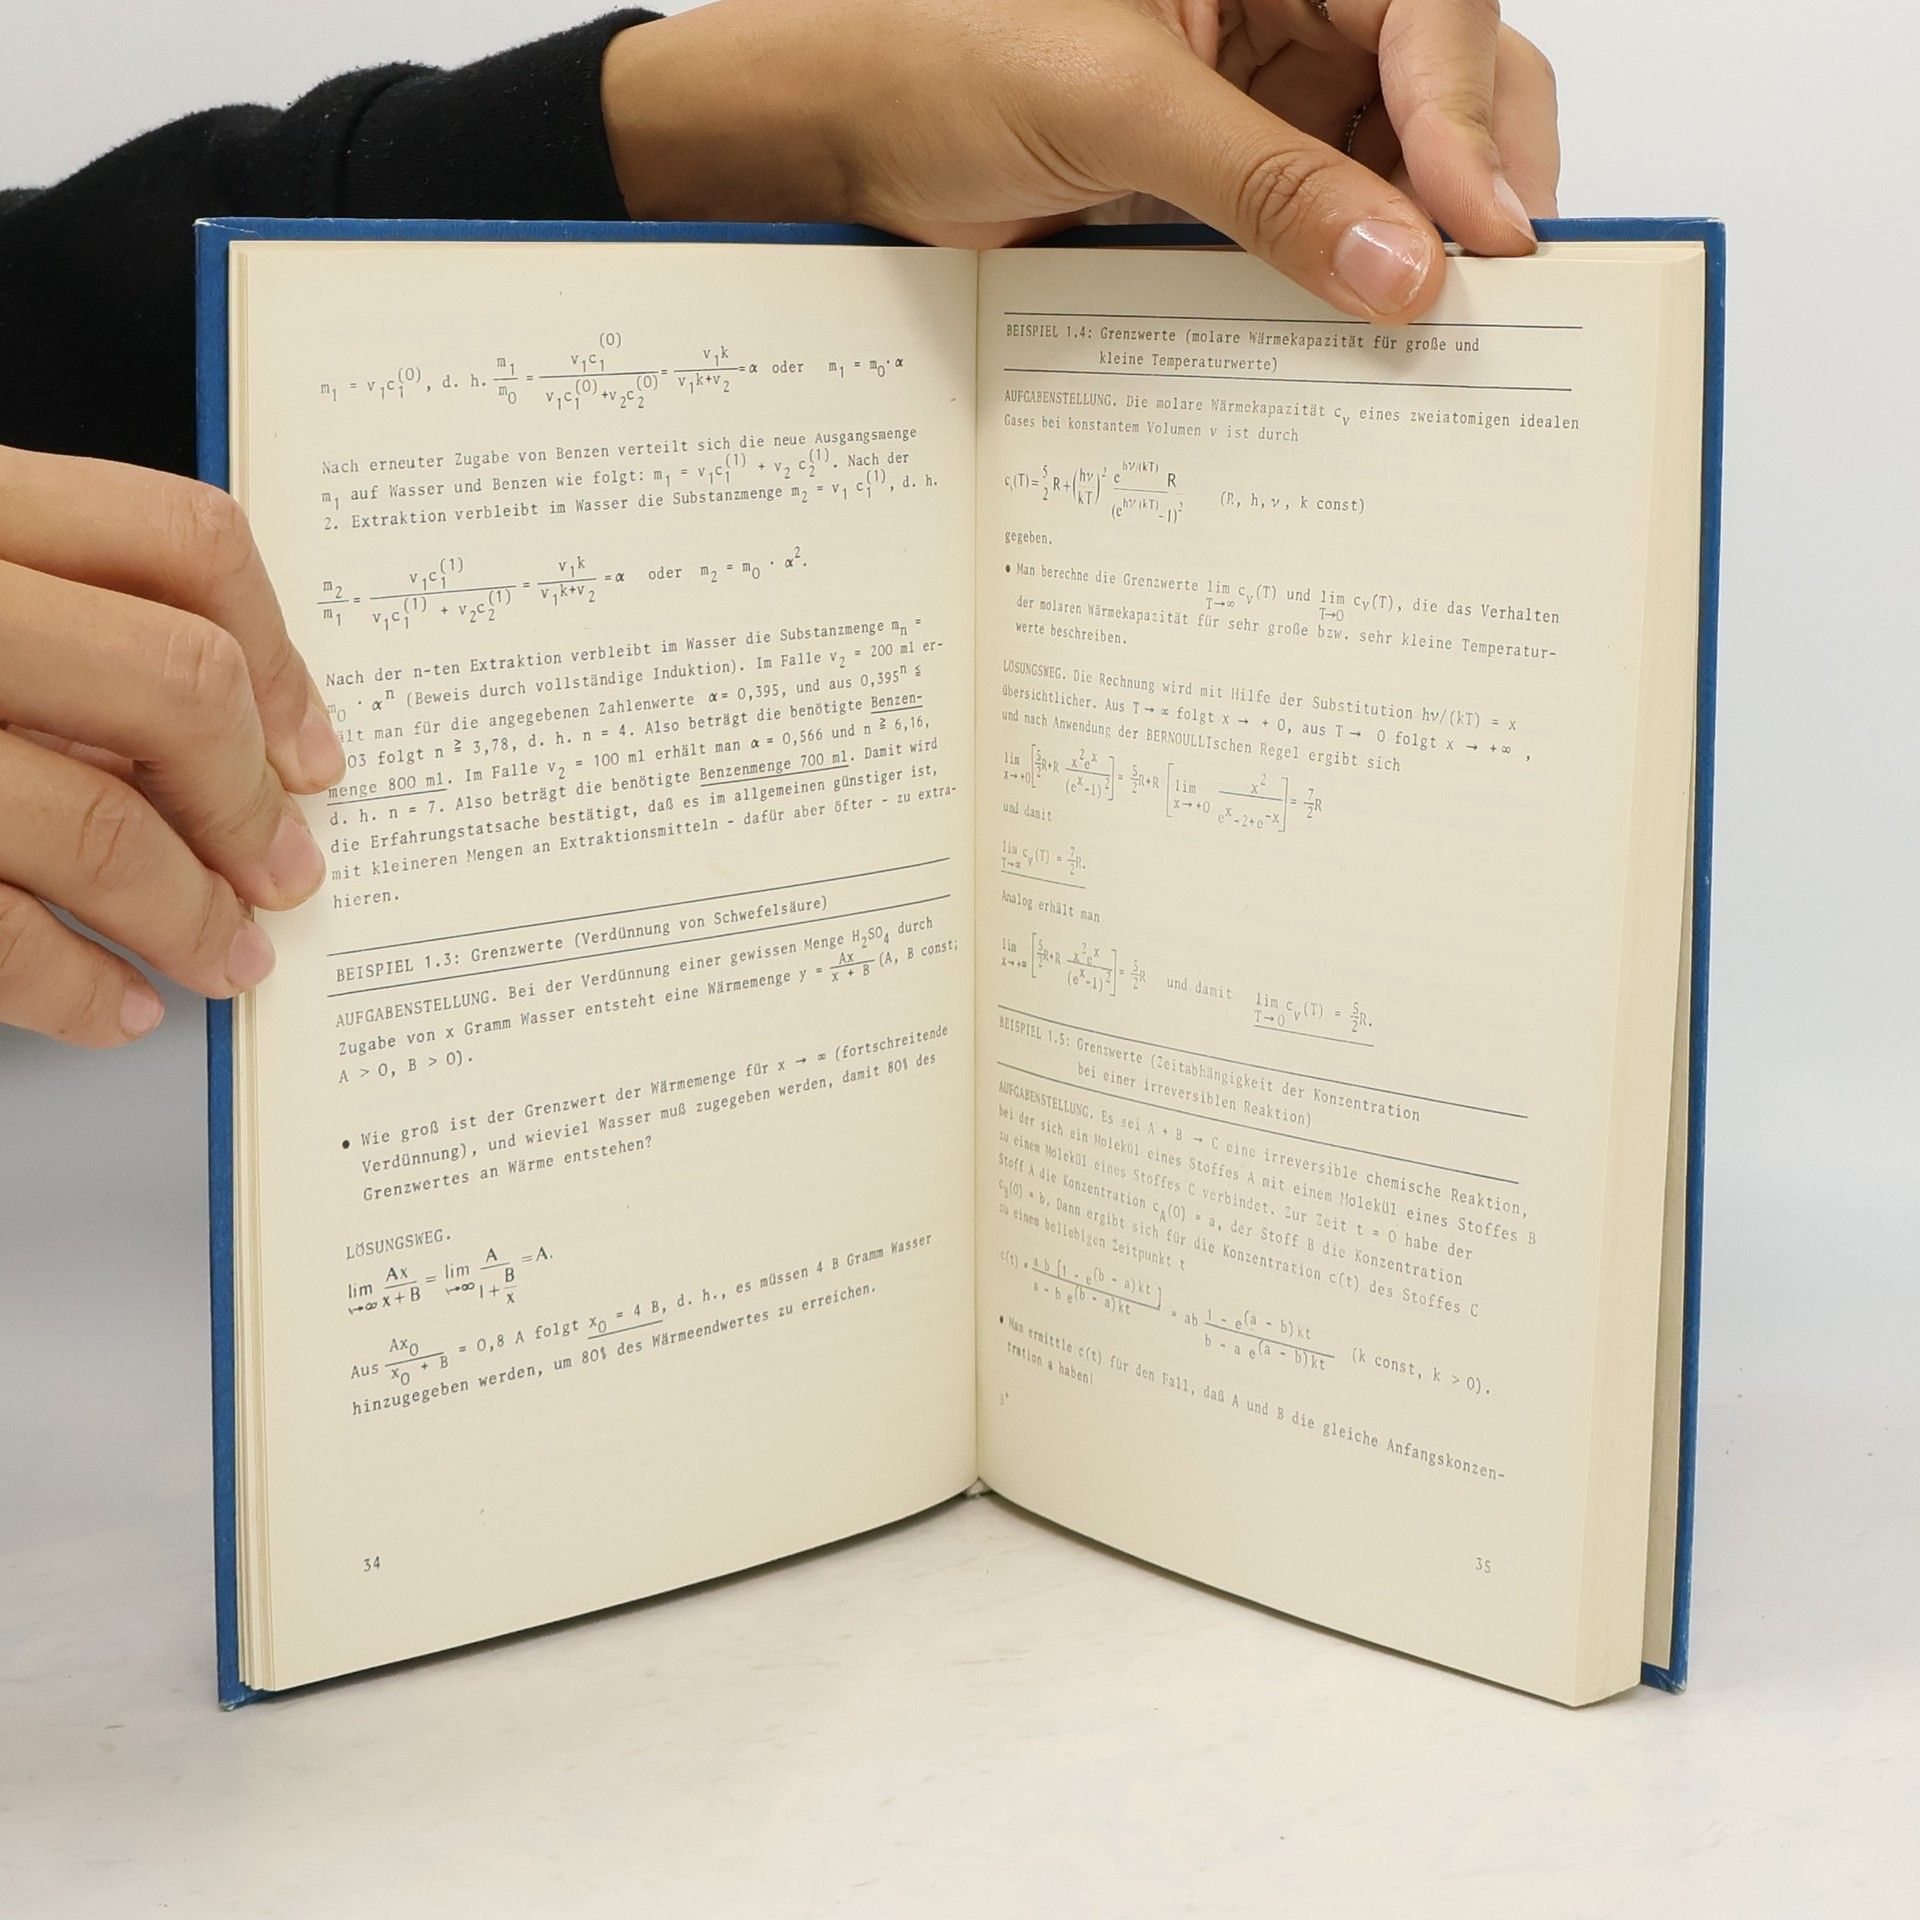 m₁ = v₁c₁⁽⁰⁾, d. h. m₁/m₀ = v₁c₁⁽⁰⁾/(v₁c₁⁽⁰⁾+v₂c₂⁽⁰⁾) = v₁k/(v₁k+v₂) = α oder m₁ = m₀·α
Nach erneuter Zugabe von Benzen verteilt sich die neue Ausgangsmenge
m₁ auf Wasser und Benzen wie folgt: m₁ = v₁c₁⁽¹⁾ + v₂ c₂⁽¹⁾. Nach der
2. Extraktion verbleibt im Wasser die Substanzmenge m₂ = v₁ c₁⁽¹⁾, d. h.
m₂/m₁ = v₁c₁⁽¹⁾/(v₁c₁⁽¹⁾ + v₂c₂⁽¹⁾) = v₁k/(v₁k+v₂) = α oder m₂ = m₀ · α².
Nach der n-ten Extraktion verbleibt im Wasser die Substanzmenge mₙ =
m₀ · αⁿ (Beweis durch vollständige Induktion). Im Falle v₂ = 200 ml er-
ält man für die angegebenen Zahlenwerte α = 0,395, und aus 0,395ⁿ ≦
03 folgt n ≧ 3,78, d. h. n = 4. Also beträgt die benötigte Benzen-
menge 800 ml. Im Falle v₂ = 100 ml erhält man α = 0,566 und n ≧ 6,16,
d. h. n = 7. Also beträgt die benötigte Benzenmenge 700 ml. Damit wird
die Erfahrungstatsache bestätigt, daß es im allgemeinen günstiger ist,
mit kleineren Mengen an Extraktionsmitteln - dafür aber öfter - zu extra-
hieren.
BEISPIEL 1.3: Grenzwerte (Verdünnung von Schwefelsäure)
AUFGABENSTELLUNG. Bei der Verdünnung einer gewissen Menge H₂SO₄ durch
Zugabe von x Gramm Wasser entsteht eine Wärmemenge y = Ax/(x + B) (A, B const;
A > 0, B > 0).
• Wie groß ist der Grenzwert der Wärmemenge für x → ∞ (fortschreitende
Verdünnung), und wieviel Wasser muß zugegeben werden, damit 80% des
Grenzwertes an Wärme entstehen?
LÖSUNGSWEG.
lim x→∞ Ax/(x+B) = lim x→∞ A/(1+B/x) = A.
Aus Ax₀/(x₀ + B) = 0,8 A folgt x₀ = 4 B, d. h., es müssen 4 B Gramm Wasser
hinzugegeben werden, um 80% des Wärmeendwertes zu erreichen.
34
BEISPIEL 1.4: Grenzwerte (molare Wärmekapazität für große und
kleine Temperaturwerte)
AUFGABENSTELLUNG. Die molare Wärmekapazität c_v eines zweiatomigen idealen
Gases bei konstantem Volumen v ist durch
c_v(T) = 5/2 R + (hν/kT)² e^(hν/(kT)) R/(e^(hν/(kT)) - 1)² (R, h, ν, k const)
gegeben.
• Man berechne die Grenzwerte lim T→∞ c_v(T) und lim T→0 c_v(T), die das Verhalten
der molaren Wärmekapazität für sehr große bzw. sehr kleine Temperatur-
werte beschreiben.
LÖSUNGSWEG. Die Rechnung wird mit Hilfe der Substitution hν/(kT) = x
übersichtlicher. Aus T → ∞ folgt x → + 0, aus T → 0 folgt x → +∞ ,
und nach Anwendung der BERNOULLIschen Regel ergibt sich
lim x→+0 [5/2 R+R x²eˣ/(eˣ-1)²] = 5/2 R+R [lim x→+0 x²/(eˣ-2+e⁻ˣ)] = 7/2 R
und damit
lim T→∞ c_v(T) = 7/2 R.
Analog erhält man
lim x→+∞ [5/2 R+R x²eˣ/(eˣ-1)²] = 5/2 R und damit lim T→0 c_v(T) = 5/2 R.
BEISPIEL 1.5: Grenzwerte (Zeitabhängigkeit der Konzentration
bei einer irreversiblen Reaktion)
AUFGABENSTELLUNG. Es sei A + B → C eine irreversible chemische Reaktion,
bei der sich ein Molekül eines Stoffes A mit einem Molekül eines Stoffes B
zu einem Molekül eines Stoffes C verbindet. Zur Zeit t = 0 habe der
Stoff A die Konzentration c_A(0) = a, der Stoff B die Konzentration
c_B(0) = b. Dann ergibt sich für die Konzentration c(t) des Stoffes C
zu einem beliebigen Zeitpunkt t
c(t) = a b [1 - e^((b - a)kt)]/(a - b e^((b - a)kt)) = ab (1 - e^((a - b)kt))/(b - a e^((a - b)kt)) (k const, k > 0).
• Man ermittle c(t) für den Fall, daß A und B die gleiche Anfangskonzen-
tration a haben!
3*
35